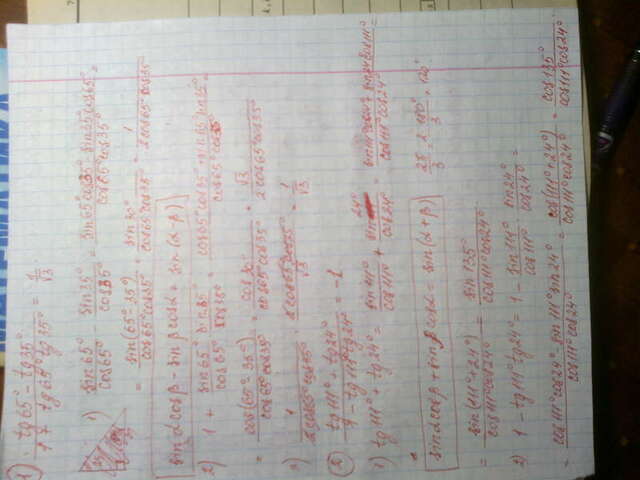 1) (tg65° - tg35°) / (1 + tg65° tg35°) = 1/√3
1) sin65°/cos65° - sin35°/cos35° = (sin65°cos35° - sin35°cos65°) / (cos65°cos35°) =
= sin(65°-35°) / (cos65°cos35°) = sin30° / (cos65°cos35°) = 1 / (2cos65°cos35°)
sinαcosβ - sinβcosα = sin(α-β)
2) 1 + sin65°/cos65° · sin35°/cos35° = (cos65°cos35° + sin65°sin35°) / (cos65°cos35°) =
= cos(65°-35°) / (cos65°cos35°) = cos30° / (cos65°cos35°) = √3 / (2cos65°cos35°)
3) 1 / (2cos65°cos35°) · 2cos65°cos35° / √3 = 1/√3
2) (tg111° + tg24°) / (1 - tg111° tg24°) = -1
1) tg111° + tg24° = sin111°/cos111° + sin24°/cos24° = / (cos111°cos24°) =
sinαcosβ + sinβcosα = sin(α+β)
2π/3 = 2·180°/3 = 120°
= sin(111°+24°) / (cos111°cos24°) = sin135° / (cos111°cos24°)
2) 1 - tg111° · tg24° = 1 - sin111°/cos111° · sin24°/cos24° =
= (cos111°cos24° - sin111°sin24°) / (cos111°cos24°) = cos(111°+24°) / (cos111°cos24°) = cos135° / (cos111°cos24°)